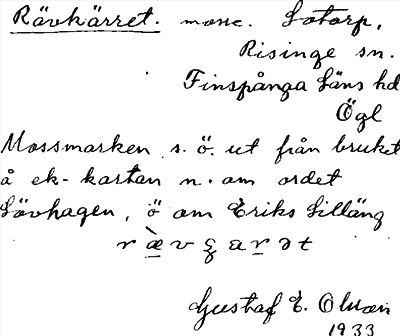 Rävkärret. mosse. Lotorp,
Risinge sn.
Finspånga läns hd
Ögl
Mossmarken s. ö. ut från bruket
å ek-kartan n. om ordet
Lövhagen, ö om Eriks Lilläng
Gustaf E. Olsson
1933